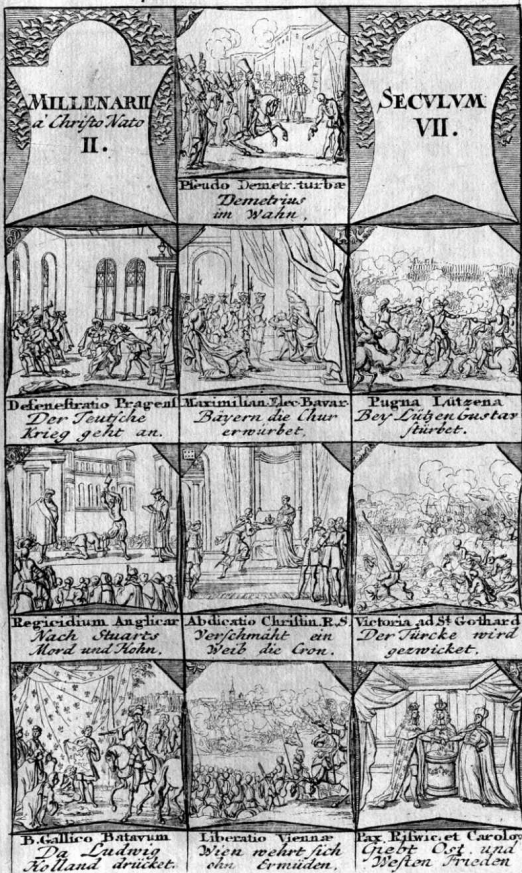 MILLENARII
a Christo Nato
II.
SECVLVM
VII.
Pseudo Demetr. turbæ
Demetrius
im Wahn,
Defenestratio Pragens
Der Teutsche
Krieg geht an.
Maximilian. Elec. Bavar.
Bayern die Chur
erwürbet,
Pugna Lützena
Bey Lützen Gustav
stürbet.
Regicidium Anglicar
Nach Stuarts
Mord und Hohn,
Abdicatio Christin. R. S.
Verschmäht ein
Weib die Cron.
Victoria ad St. Gothard
Der Türcke wird
gezwicket,
B. Gallico Batavum
Da Ludwig
Holland drücket.
Liberatio Viennæ
Wien wehrt sich
ohn Ermüden,
Pax Riswic. et Carolow
Giebt Ost. und
Westen Frieden